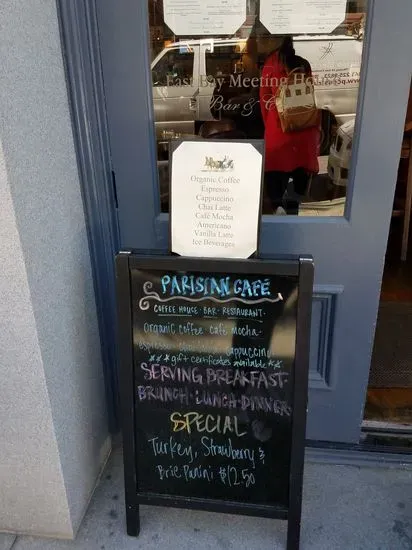 East Bay Meeting House
Bar &
Organic Coffee
Espresso
Cappuccino
Chai Latte
Café Mocha
Americano
Vanilla Latte
Ice Beverages
PARISIAN CAFE
COFFEE HOUSE · BAR · RESTAURANT ·
organic coffee cafe mocha ·
espresso cappuccino
*** gift certificates available **
SERVING BREAKFAST ·
BRUNCH · LUNCH · DINNER ·
SPECIAL
Turkey, Strawberry &
Brie Panini $12.50